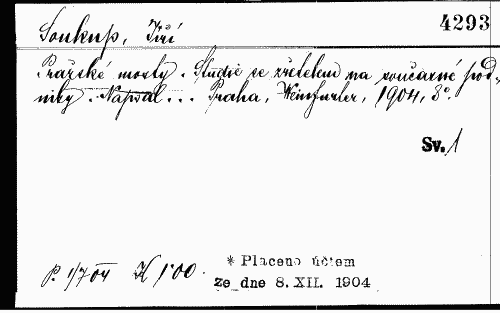 Soukup, Jiří 4293
Pražské mosty. Studie se zřetelem na současné pod-
niky. Napsal... Praha, Weinfurter, 1904, 8°.
Sv. 1
P. 1/7 04 K 1·00.
* Placeno účtem
ze dne 8. XII. 1904